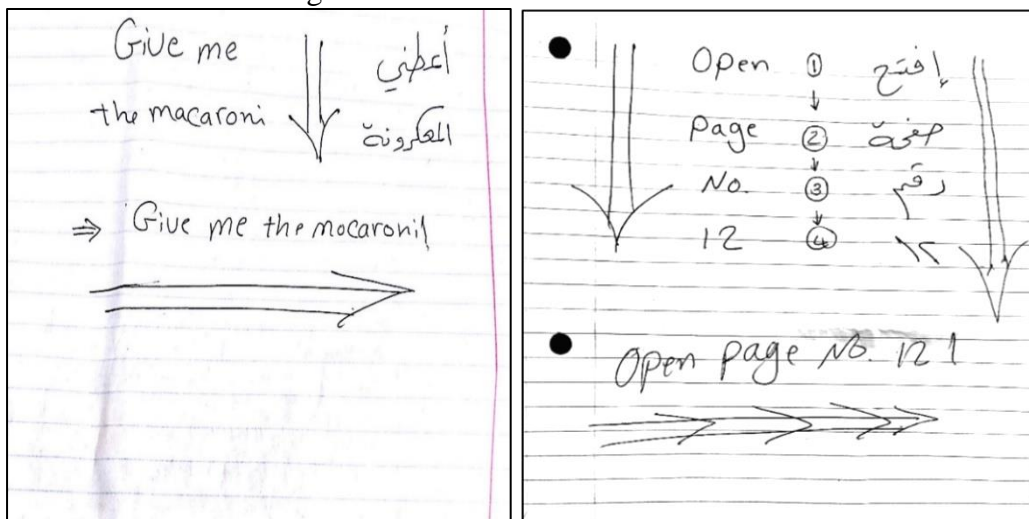 Give me أعطني
the macaroni المعكرونة
⇒ Give me the mocaroni!
Open ① إفتح
Page ② صفحة
No. ③ رقم
12 ④ ١٢
Open page No. 12 !